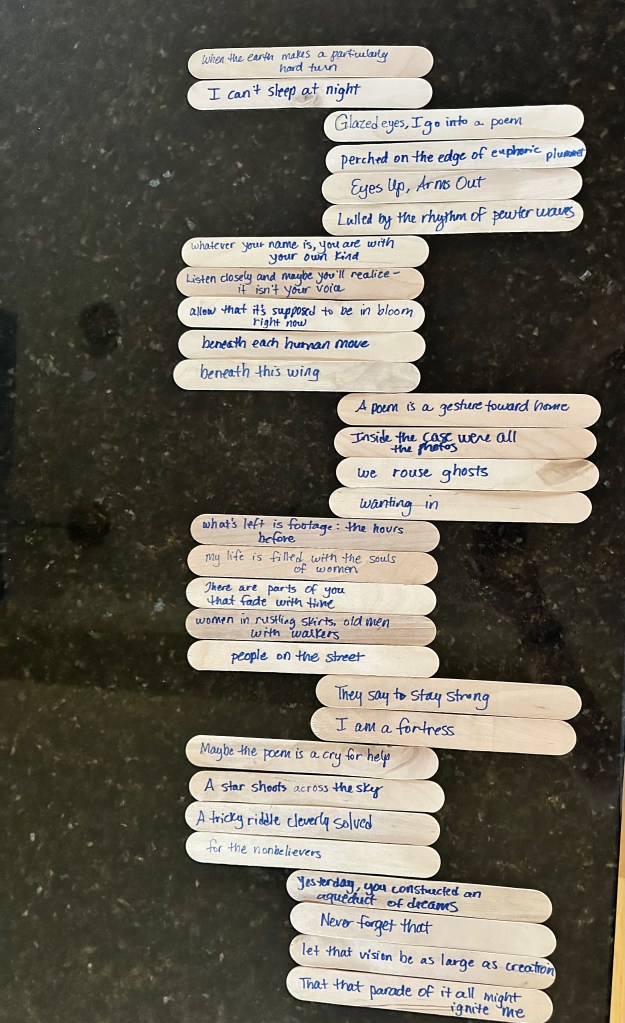 when the earth makes a particularly
hard turn
I can't sleep at night
Glazed eyes, I go into a poem
perched on the edge of euphoric plummet
Eyes Up, Arms Out
Lulled by the rhythm of pewter waves
whatever your name is, you are with
your own kind
Listen closely and maybe you'll realize -
it isn't your voice
allow that it's supposed to be in bloom
right now
beneath each human move
beneath this wing
A poem is a gesture toward home
Inside the case were all
the photos
we rouse ghosts
wanting in
what's left is footage: the hours
before
my life is filled with the souls
of women
There are parts of you
that fade with time
women in rustling skirts, old men
with walkers
people on the street
They say to stay strong
I am a fortress
Maybe the poem is a cry for help
A star shoots across the sky
A tricky riddle cleverly solved
for the nonbelievers
Yesterday, you constructed an
aqueduct of dreams
Never forget that
let that vision be as large as creation
That that parade of it all might
ignite me